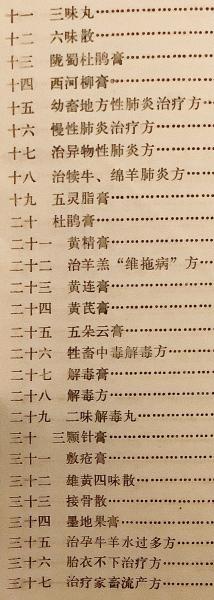 十一 三味丸…………
十二 六味散…………
十三 陇蜀杜鹃膏…………
十四 西河柳膏…………
十五 幼畜地方性肺炎治疗方…………
十六 慢性肺炎治疗方…………
十七 治异物性肺炎方…………
十八 治犊牛、绵羊肺炎方…………
十九 五灵脂膏…………
二十 杜鹃膏…………
二十一 黄精膏…………
二十二 治羊羔“维拖病”方…………
二十三 黄连膏…………
二十四 黄芪膏…………
二十五 五朵云膏…………
二十六 牲畜中毒解毒方…………
二十七 解毒膏…………
二十八 解毒方…………
二十九 二味解毒丸…………
三十 三颗针膏…………
三十一 敷疮膏…………
三十二 雄黄四味散…………
三十三 接骨散…………
三十四 墨地果膏…………
三十五 治孕牛羊水过多方…………
三十六 胎衣不下治疗方…………
三十七 治疗家畜流产方…………